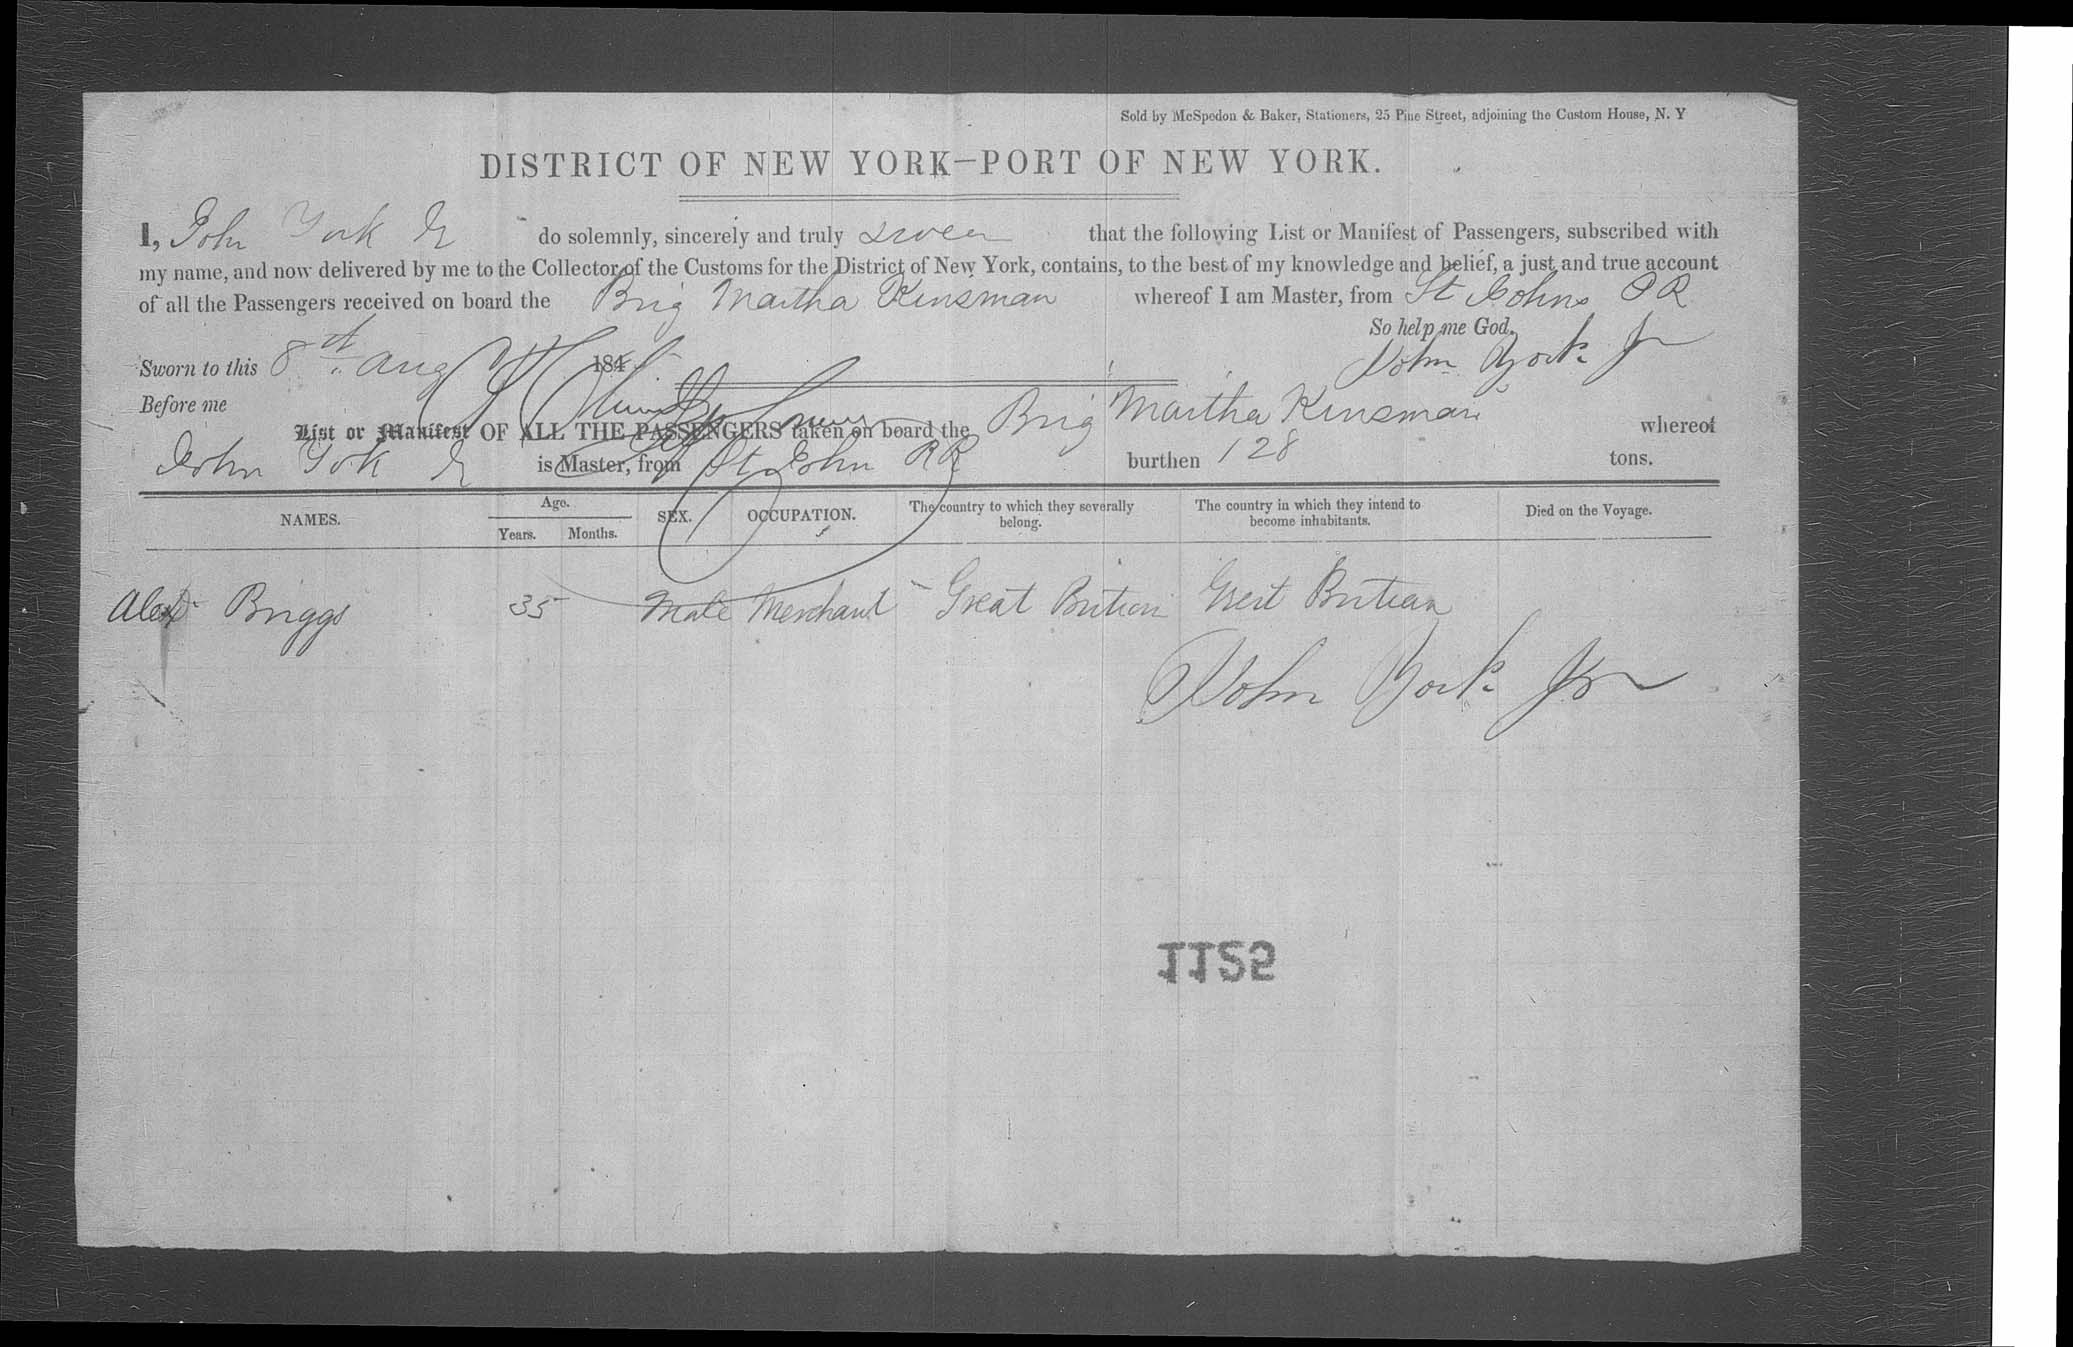 Sold by McSpedon & Baker, Stationers, 25 Pine Street, adjoining the Custom House, N. Y
DISTRICT OF NEW YORK—PORT OF NEW YORK.
I, John York Jr do solemnly, sincerely and truly swear that the following List or Manifest of Passengers, subscribed with
my name, and now delivered by me to the Collector of the Customs for the District of New York, contains, to the best of my knowledge and belief, a just and true account
of all the Passengers received on board the Brig Martha Kinsman whereof I am Master, from St Johns P R
So help me God.
Sworn to this 8th Aug 184 John York Jr
Before me
List or Manifest OF ALL THE PASSENGERS taken on board the Brig Martha Kinsman whereof
John York Jr is Master, from St John P R burthen 128 tons.
NAMES. Age. Years. Months. SEX. OCCUPATION. The country to which they severally belong. The country in which they intend to become inhabitants. Died on the Voyage.
Alexr Briggs 35 Male Merchant Great Britian Great Britian
John York Jr
1125